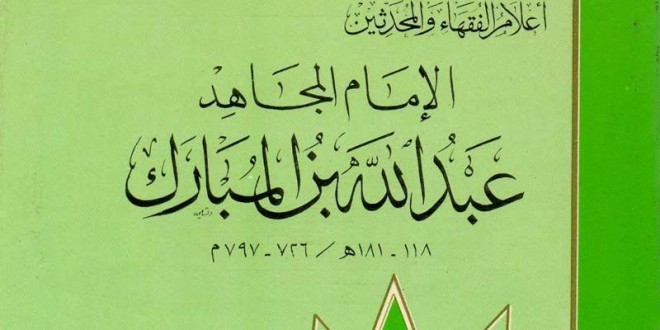 أعلام الفقهاء والمحدثين
الإمام المجاهد
عبد الله بن المبارك
١١٨ - ١٨١ هـ / ٧٢٦ - ٧٩٧ م